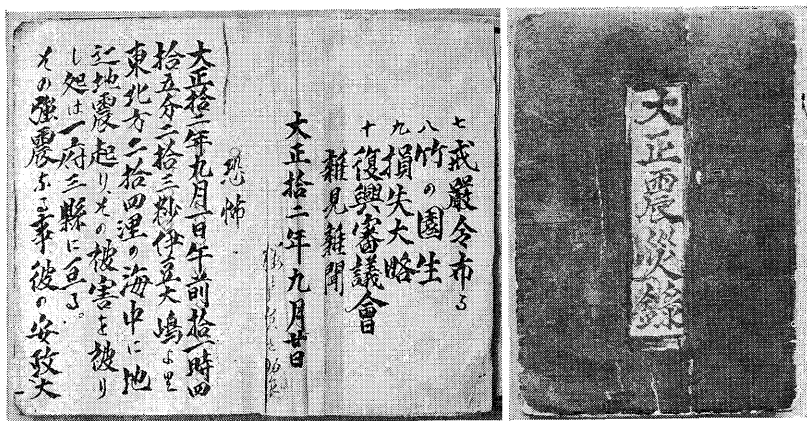 大正震災錄
七 戒嚴令布る
八 竹の園生
九 損失大略
十 復興審議會
雜見雜聞
大正拾二年九月廿日
恐怖
大正拾二年九月一日午前拾一時四
拾五分二拾三秒伊豆大嶋より
東北方二拾四浬の海中に地
辷地震起りその被害を被り
し処は一府三縣に亘る。
その強震なる事彼の安政大